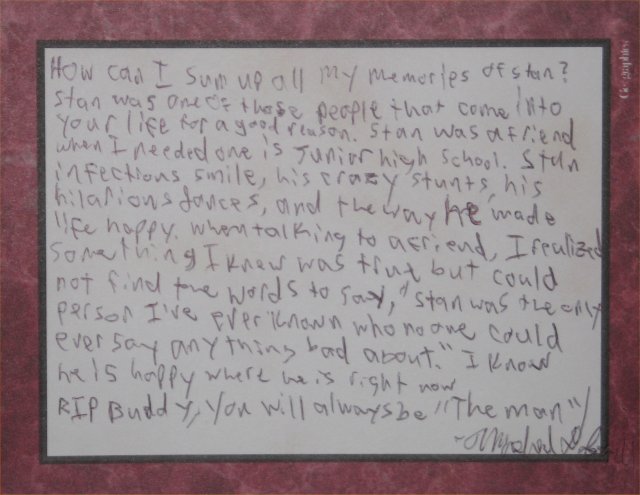 How can I sum up all my memories of Stan?
Stan was one of those people that come into
your life for a good reason. Stan was a friend
when I needed one is Junior high school. Stan
infectious smile, his crazy stunts, his
hilarious dances, and the way he made
life happy. When talking to a friend, I realized
something I knew was true but could
not find the words to say, "Stan was the only
person I've ever known who no one could
ever say anything bad about." I know
he is happy where he is right now
RIP Buddy, you will always be "The man"
Geographics